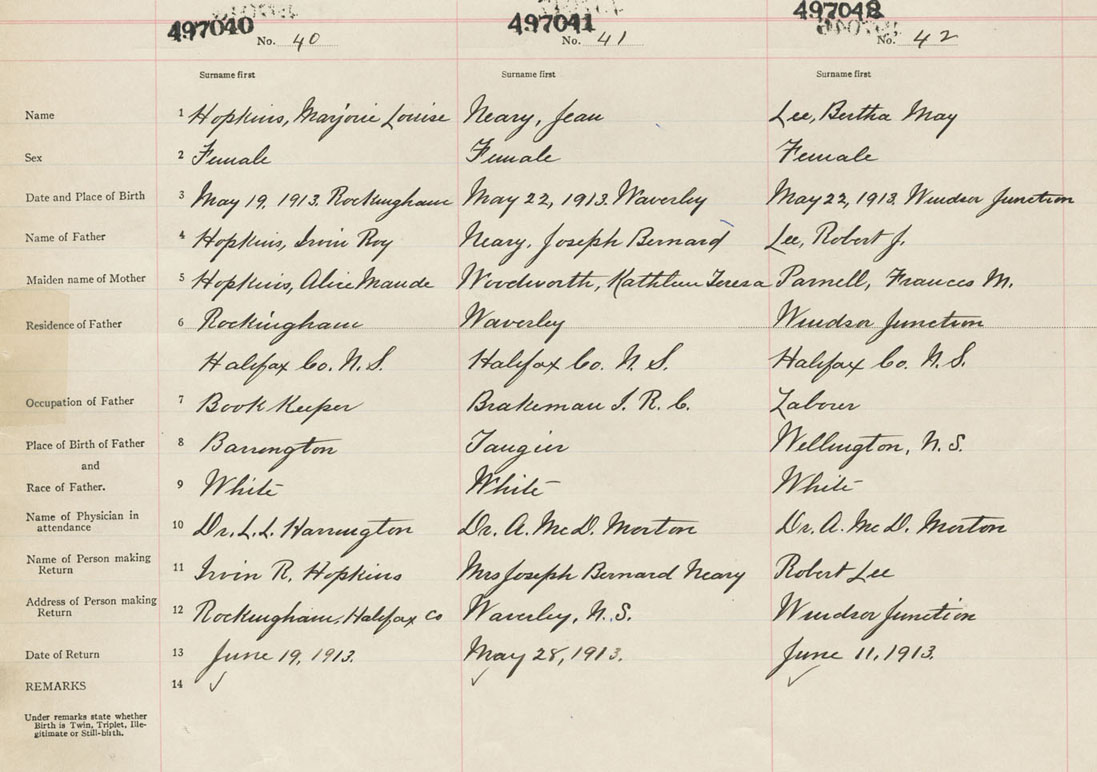 497040 497041 497042
No. 40 No. 41 No. 42
Surname first Surname first Surname first
Name 1 Hopkins, Marjorie Louise Neary, Jean Lee, Bertha May
Sex 2 Female Female Female
Date and Place of Birth 3 May 19, 1913. Rockingham May 22, 1913. Waverley May 22, 1913. Windsor Junction
Name of Father 4 Hopkins, Irvin Roy Neary, Joseph Bernard Lee, Robert J.
Maiden name of Mother 5 Hopkins, Alice Maude Woodworth, Kathleen Teresa Parnell, Frances M.
Residence of Father 6 Rockingham Waverley Windsor Junction
Halifax Co. N.S. Halifax Co. N.S. Halifax Co. N.S.
Occupation of Father 7 Book Keeper Brakeman I.R.C. Laborer
Place of Birth of Father 8 Barrington Tangier Wellington, N.S.
and
Race of Father. 9 White White White
Name of Physician in
attendance 10 Dr. L.L. Harrington Dr. A. McD. Morton Dr. A. McD. Morton
Name of Person making
Return 11 Irvin R. Hopkins Mrs Joseph Bernard Neary Robert Lee
Address of Person making
Return 12 Rockingham, Halifax Co Waverley, N.S. Windsor Junction
Date of Return 13 June 19, 1913. May 28, 1913. June 11, 1913.
REMARKS 14
Under remarks state whether
Birth is Twin, Triplet, Ille-
gitimate or Still-birth.